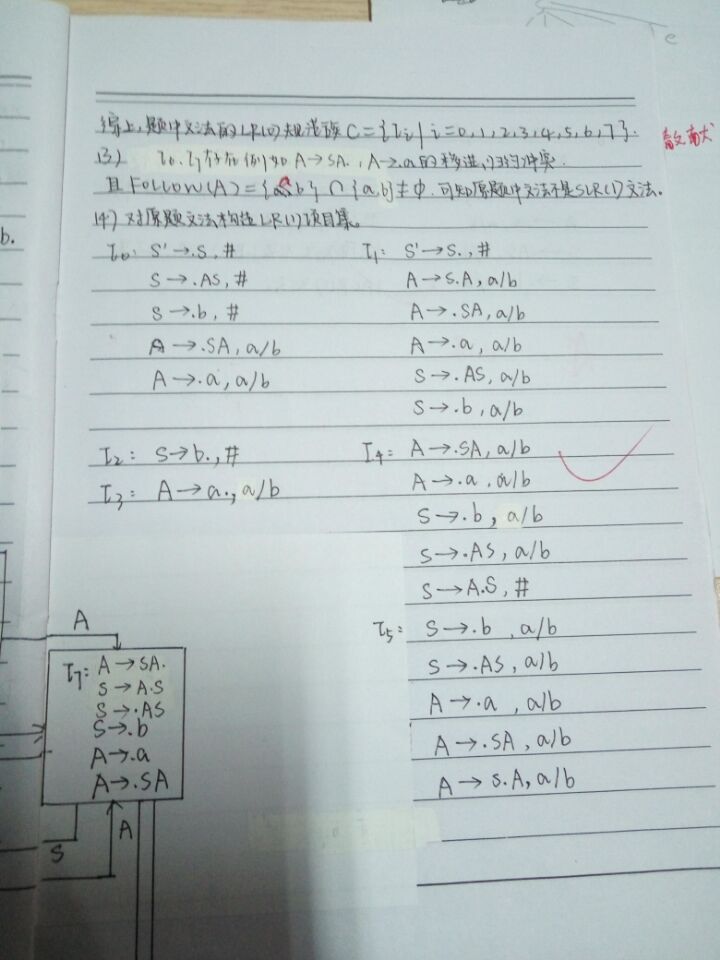 综上,题中文法的LR(0)规范族 C={I_i | i=0,1,2,3,4,5,6,7}.
(3) I6、I7存在例如 A→SA. , A→.a 的移进、归约冲突.
且 Follow(A)={a,b}∩{a,b}≠Φ.可知原题中文法不是SLR(1)文法。
(4) 对原题文法构造LR(1)项目集。
b.
I0: S'→.S,#
S→.AS,#
S→.b,#
A→.SA,a/b
A→.a,a/b
I1: S'→S.,#
A→S.A,a/b
A→.SA,a/b
A→.a,a/b
S→.AS,a/b
S→.b,a/b
I2: S→b.,#
I3: A→a.,a/b
I4: A→.SA,a/b
A→.a,a/b
S→.b,a/b
S→.AS,a/b
S→A.S,#
I5: S→.b,a/b
S→.AS,a/b
A→.a,a/b
A→.SA,a/b
A→S.A,a/b
A
I7: A→SA.
S→A.S
S→.AS
S→.b
A→.a
A→.SA
S
A
e